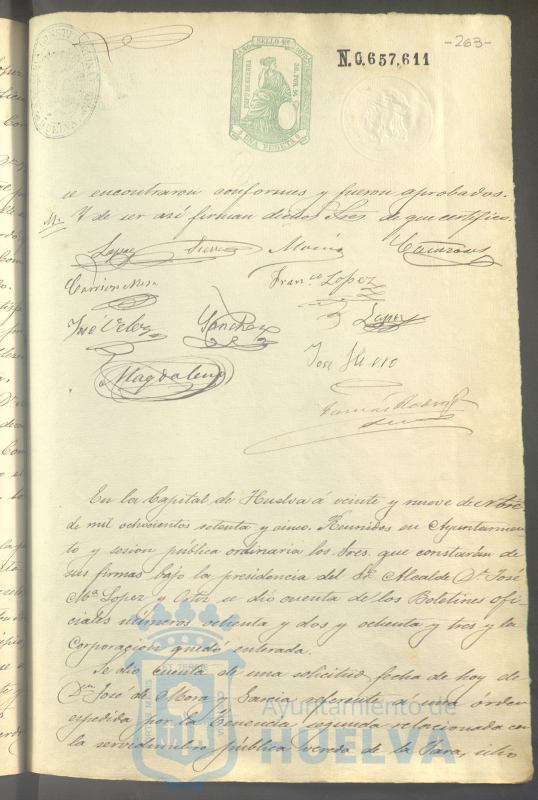 -263-
N.0,657,611
SELLO 11º
UNA PESETA
HUELVA
se encontraron conformes y fueron aprobados.
Y de ser así firman dichos Sres. de que certifico.
Lopez Sierra
Carrion Mesa Franco Lopez
José Velez Sanchez Lopez
Magdaleno José
En la Capital de Huelva á veinte y nueve de Nbre
de mil ochocientos setenta y cinco. Reunidos en Ayuntamien-
to y sesion pública ordinaria los Sres. que constarán de
sus firmas bajo la presidencia del Sr. Alcalde Dn. José
Ma. Lopez y se dio cuenta de los Boletines ofi-
ciales números ochenta y dos y ochenta y tres y la
Corporacion quedó enterada.
Se dio cuenta de una solicitud fecha de hoy de
Dn. José de Mora y Garcia referente á una órden
expedida por la Tenencia segunda relacionada con
la servidumbre pública vereda de la sitio
Ayuntamiento de
HUELVA